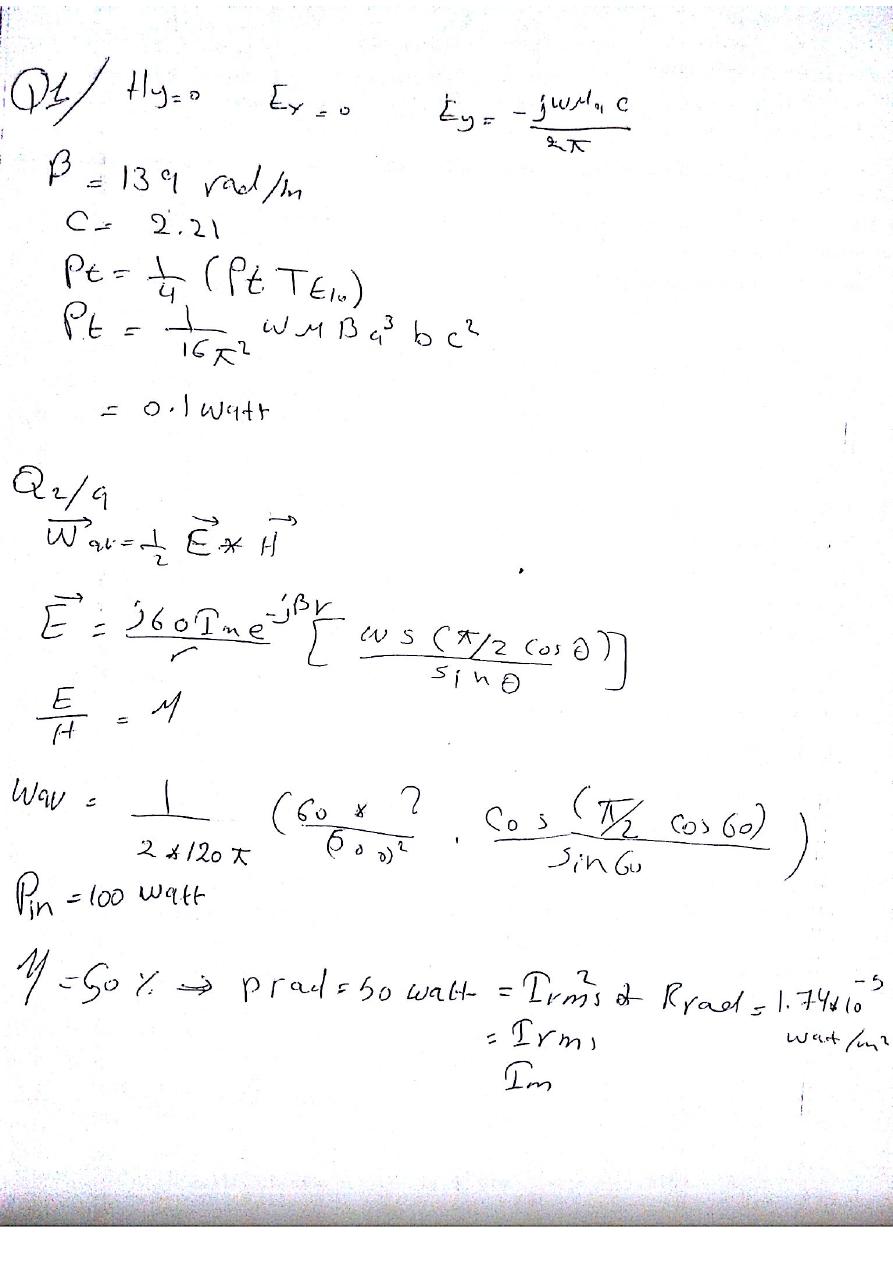 Q1/ Hy=0 Ex=0 Ey = -jωμa c / 2π
β = 139 rad/m
C = 2.21
Pt = 1/4 (Pt TE10)
Pt = 1/16π² ω μ β a³ b c²
= 0.1 watt
Q2/a
Wav = 1/2 E * H
E = j60Im e^-jβr / r [cos(π/2 cos θ) / sin θ]
E/H = η
Wav = 1 / 2*120π (60 * ? / (500)² . cos(π/2 cos 60) / sin 60)
Pin = 100 watt
η = 50% ⇒ prad = 50 watt = Irms² * Rrad = 1.74*10^-5
= Irms watt/m²
Im